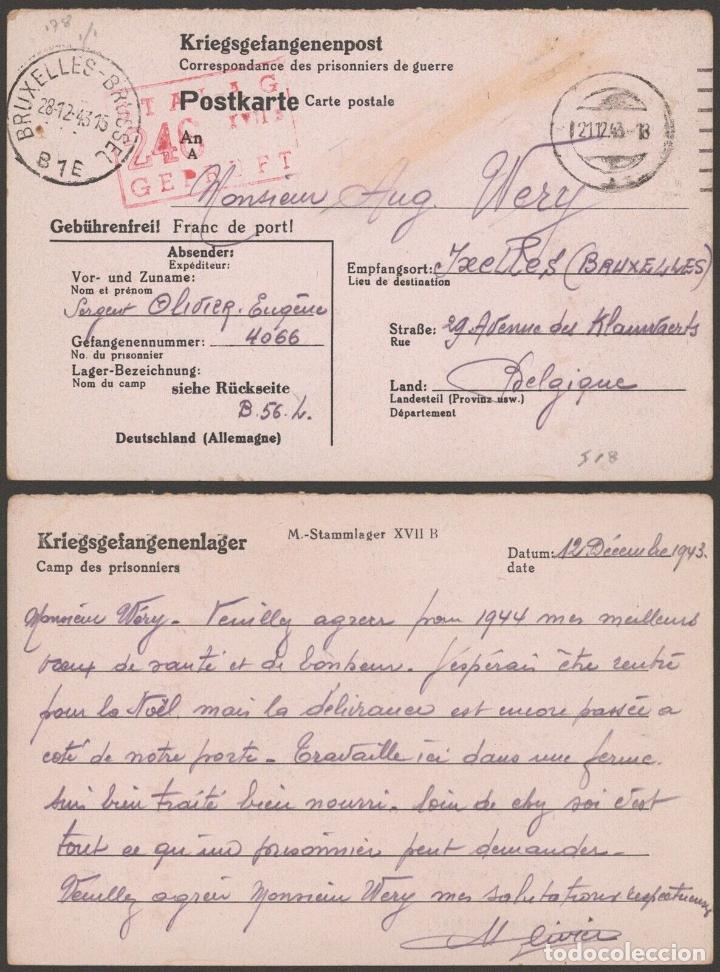 178 1/1
Kriegsgefangenenpost
Correspondance des prisonniers de guerre
BRUXELLES-BRUSSEL
28-12-43 15
B 1 E
STALAG
XVII
246
GEPRÜFT
Postkarte Carte postale
21.12.43-18
An
A
Monsieur Aug. Wery
Gebührenfrei! Franc de port!
Absender:
Expéditeur:
Vor- und Zuname:
Nom et prénom
Sergent Olivier. Eugène
Gefangenennummer: 4066
No. du prisonnier
Lager-Bezeichnung:
Nom du camp
siehe Rückseite
B.56.L.
Deutschland (Allemagne)
Empfangsort: Ixelles (BRUXELLES)
Lieu de destination
Straße: 29 Avenue des Klauwaerts
Rue
Land: Belgique
Landesteil (Provinz usw.)
Département
518
Kriegsgefangenenlager
Camp des prisonniers
M.-Stammlager XVII B
Datum: 12 Décembre 1943.
date
Monsieur Wéry - Veuillez agréer pour 1944 mes meilleurs
vœux de santé et de bonheur. J'espérais être rentré
pour la Noël, mais la délivrance est encore passée a
coté de notre porte - Travaille ici dans une ferme.
suis bien traité bien nourri. loin de chez soi c'est
tout ce qu'un prisonnier peut demander -
Veuillez agréer Monsieur Wéry mes salutations respectueuses
todocoleccion